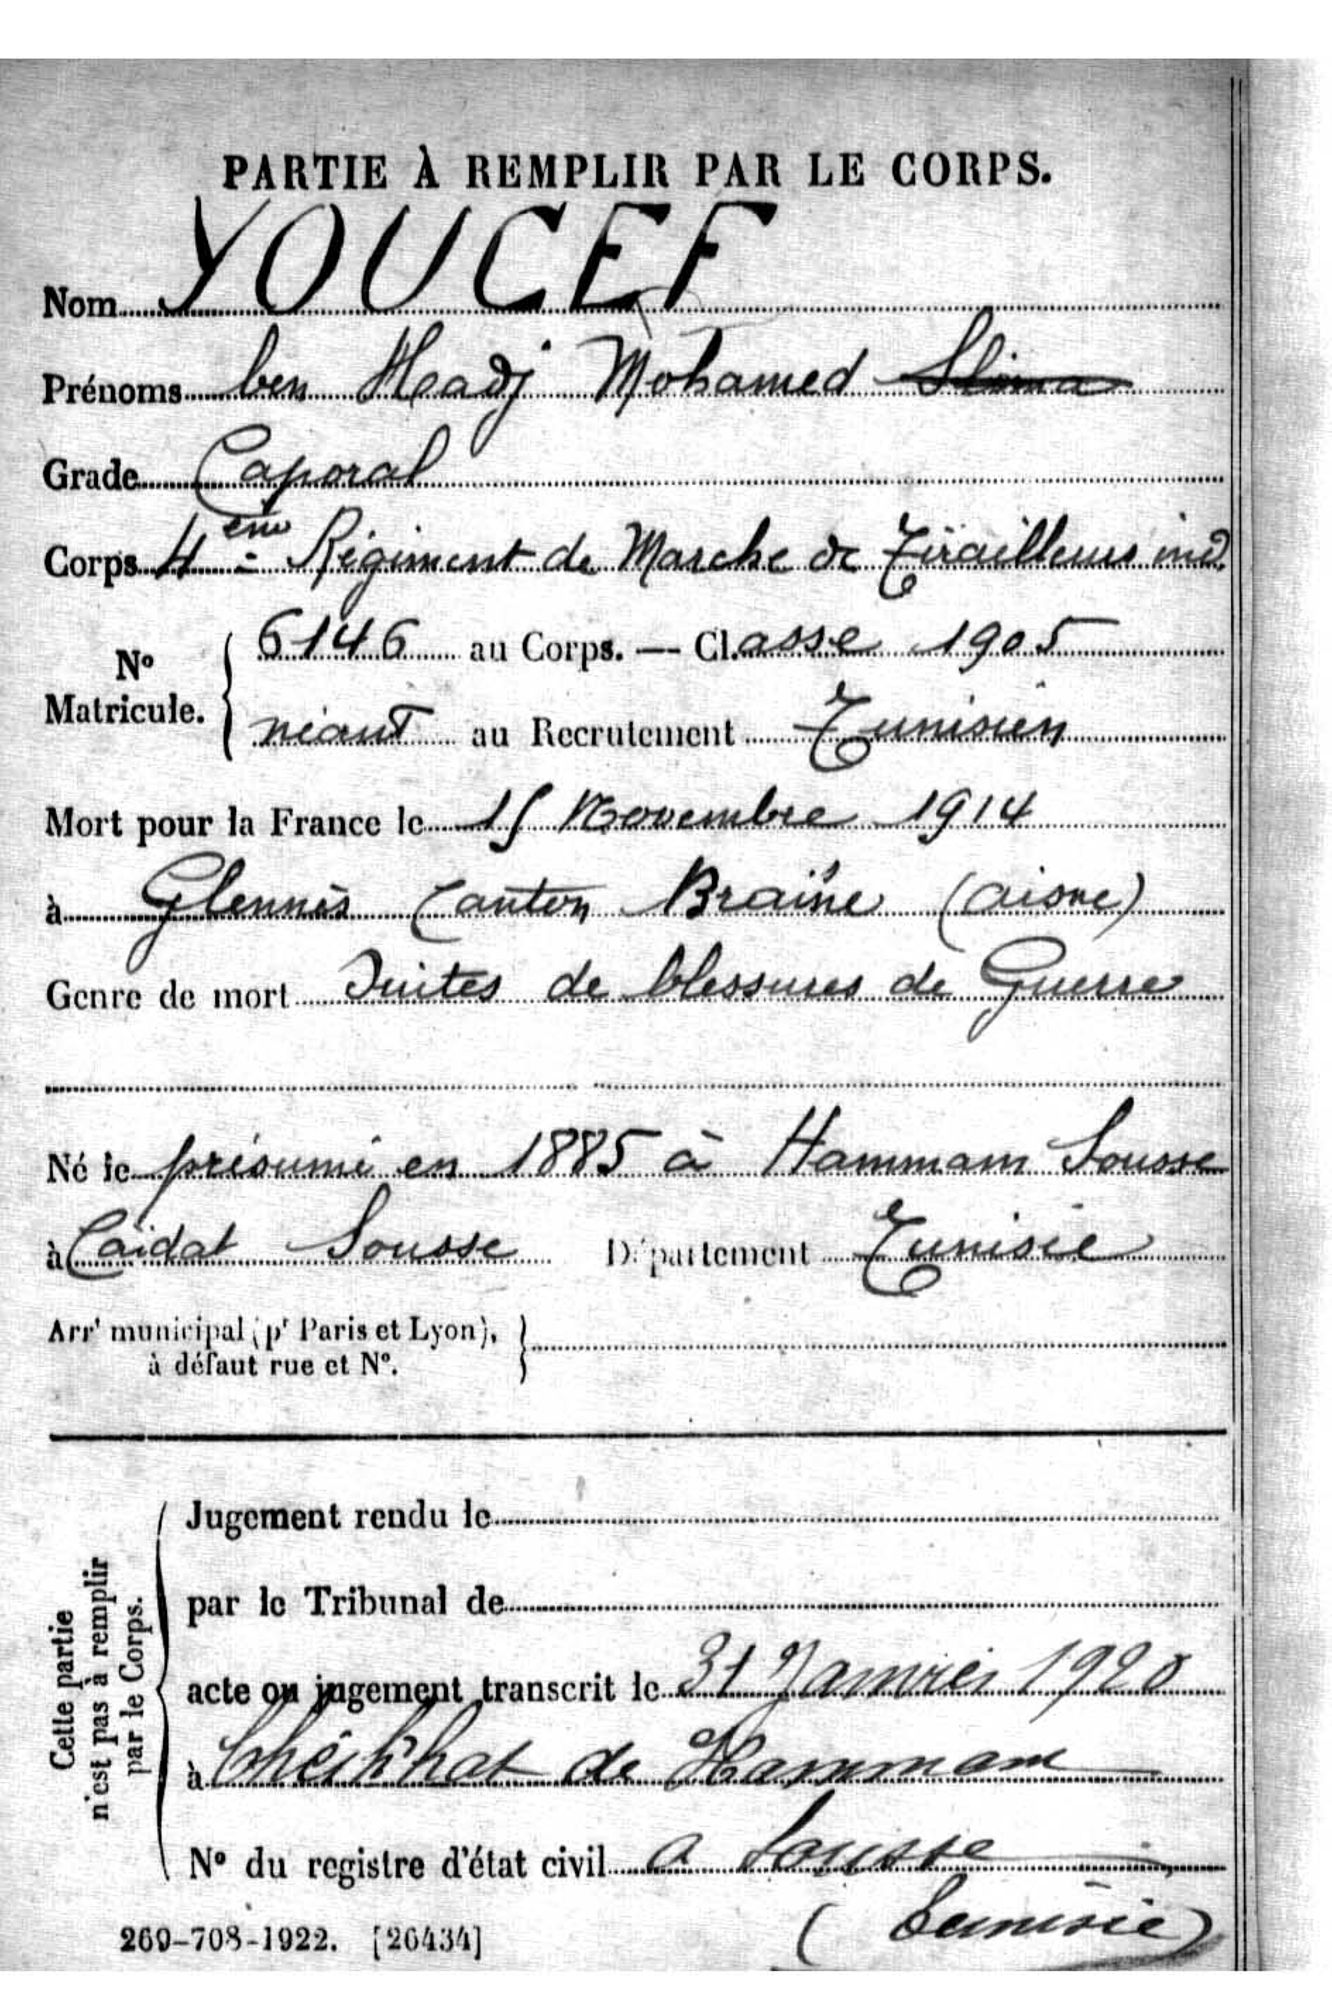 PARTIE À REMPLIR PAR LE CORPS.
Nom YOUCEF
Prénoms ben Hadj Mohamed Slima
Grade Caporal
Corps 4ème Régiment de Marche de Tirailleurs ind.
No Matricule. 6146 au Corps. — Classe 1905
néant au Recrutement Tunisien
Mort pour la France le 15 Novembre 1914
à Glennes Canton Braine (aisne)
Genre de mort Suites de blessures de Guerre
Né le présumé en 1885 à Hammam Sousse
à Caidat Sousse Département Tunisie
Arrt municipal (pr Paris et Lyon),
à défaut rue et No.
Cette partie
n'est pas à remplir
par le Corps.
Jugement rendu le
par le Tribunal de
acte ou jugement transcrit le 31 Janvier 1920
à Cheikhat de Hammam
No du registre d'état civil a Sousse
(Tunisie)
269-708-1922. [26434]